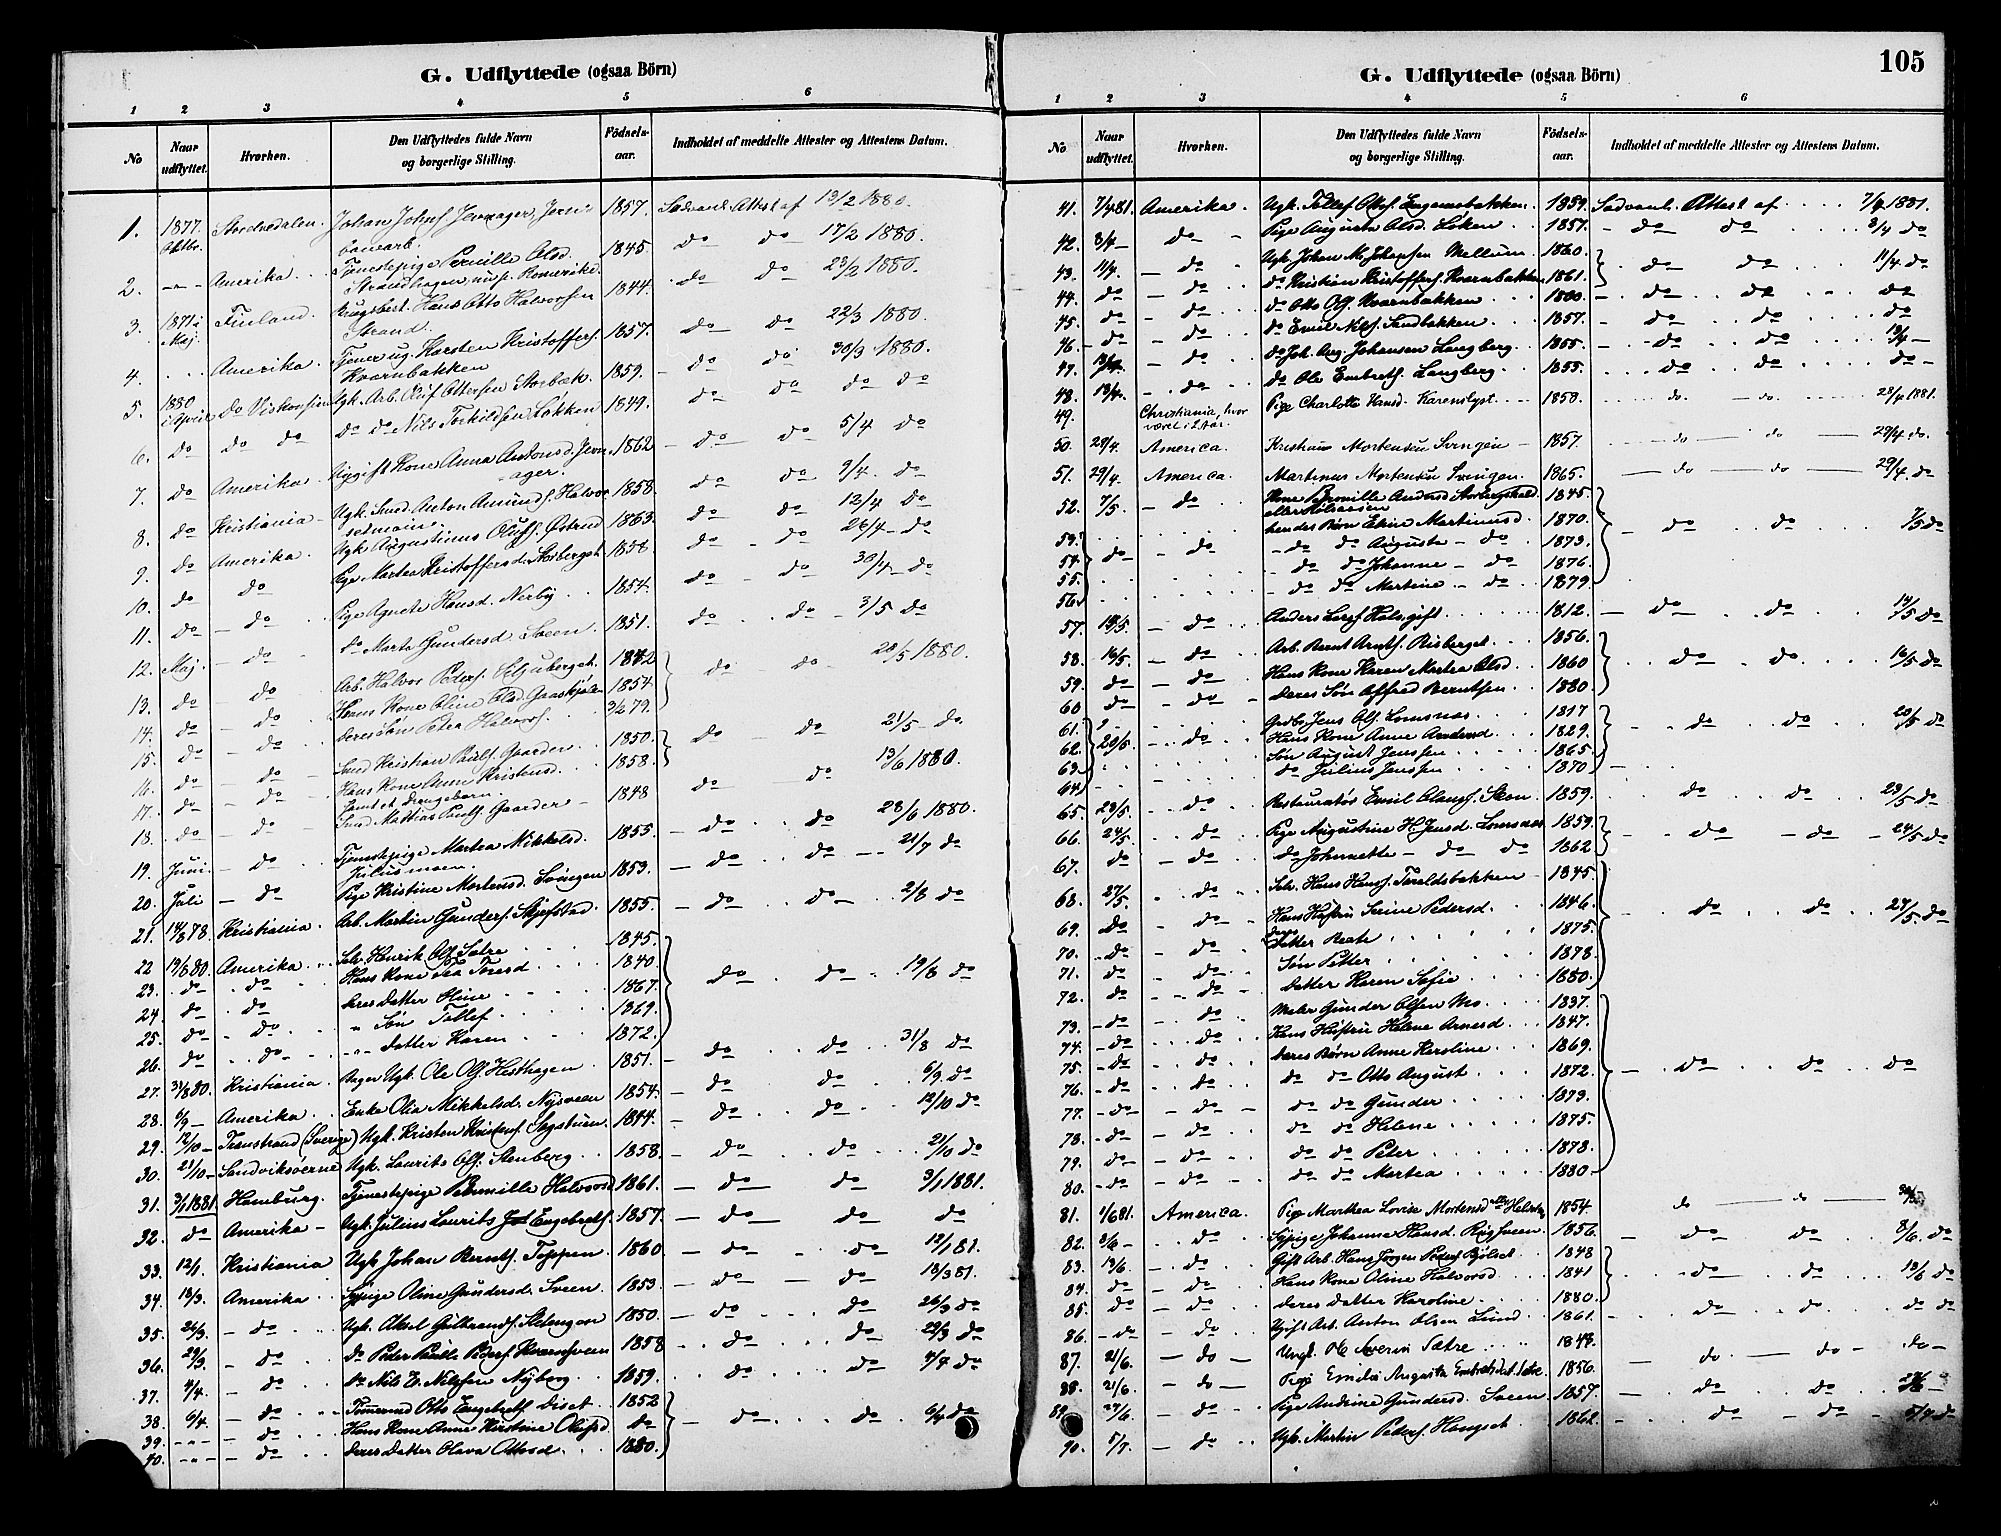 G. Udflyttede (ogsaa Börn)
1 2 3 4 5 6
No
Naar udflyttet.
Hvorhen.
Den Udflyttedes fulde Navn og borgerlige Stilling.
Födsels-aar.
Indholdet af meddelte Attester og Attestens Datum.
1. 1877. Oktbr. Johan Johns. Jernager, 1857. Sædvanl. Attest af 13/2 1880.
2. -"- Amerika Tjenestepige Pernille Olsd. 1845. do do 17/2 1880.
3. 1871 i Maj. Finland. Hans Otto Halvorsen Strand. 1844. do do 23/2 1880.
4. Amerika. Tjener ug. Karsten Kristoffers. Kværnbakken 1857. do do 22/3 1880.
5. 1880 i April do Viskonsin Ugk. Arb. Oluf Ottersen Storbæk. 1859. do do 30/3 1880.
6. do do do do do Nils Torkildsen Løkken 1849. do do do do
7. do Amerika. Nygift Kone Anna Antonsd. Jernager. 1862 do do 5/4 do
8. do Kristiania Ugk. Smed. Anton Amunds. 1858. do do 9/4. do
9. do Amerika. Ugk Augustinus Olufs. Østrud 1863. do do 13/4 do
10. do do Pige Martea Kristoffersd. Storberget 1858. do do 26/4 do
11. do do Pige Agnete Hansd. Nerby 1854. do do 30/4 do
12. Maj. do do Marte Gundersd Sveen. 1851. do do 3/5 do
13. do do Arb. Halvor Peders. 1842 do do 28/5 1880.
14. do do Hans Kone Oline Olsd. 1854
15. do do deres Søn Peter Halvors. 3/2 79.
16. do do Smed Kristian Pauls. Gaarder 1850. do do 21/5 do
17. do do Hans Kone Anne Kristensd. 1858.
18. do do Smd Mathias Pauls. Gaarder 1848 do do 13/6 1880.
19. Juni. do Tjenestepige Martea Mikkelsd. Juliusmoen 1855. do do 23/6 1880.
20. Juli do Pige Kristine Mortensd. Svingen 1859. do do 21/7 do
21. 14/8 78. Kristiania. Arb. Martin Gunders. Skjefstad. 1855. do do 2/8 do
22 19/8 80. Amerika Selv. Henrik Ols. Sætre 1845. do do 19/8 do
23. do do Hans Kone Tea Toresd 1840
24 do do deres Datter Oline 1867.
25. do do " Søn Tollef 1869.
26. do do "" Datter Karen 1872.
27. 31/8 80. Kristiania. Bager Ugk. Ole Ols. Hesthagen 1851. do do 31/8 do
28. 6/9 Amerika Enke Olia Mikkelsd. Nysveen 1854. do do 6/9. do
29. 12/10 (Sverige) Ugk. Kristen Kristens. Sagstuen. 1844. do do 12/10 do
30. 21/10 Sandviksøerne Ugk. Laurits Ols. Stenberg 1858. do do 21/10 do
31. 3/1 1881. Hamburg. Tjenestepige Pernille Halvorsd 1861. do do 3/1 1881.
32. do Amerika Ugk. Julius Laurits Engebrets. 1857. do do do
33. 12/1. Kristiania Ugk Johan Bernts. Toppen 1860 do do 12/1 81.
34. 18/3. Amerika Sypige Oline Gundersd. Sveen 1853. do do 18/3 81.
35. 26/3. do Ugk. Aksel Gulbrands. Stengen 1850. do do 26/3 do
36. 29/3. do do Peder Paulle Peders. Kværnsveen 1858 do do 29/3 do
37. 4/4. do do Nils E. Nilssen Nyborg 1859. do do 4/4 do
38. 6/4. do Tømermd Otto Engebrets Diset 1852 do do 6/4 do
39. -"- do Hans Kone Anne Kirstine Olufsd do
40. -"- do deres Datter Olava Ottosd 1880.
G. Udflyttede (ogsaa Börn)
105
1 2 3 4 5 6
No
Naar udflyttet.
Hvorhen.
Den Udflyttedes fulde Navn og borgerlige Stilling.
Födsels-aar.
Indholdet af meddelte Attester og Attestens Datum.
41. 7/4 81. Amerika. Ugk. Tollef Ottos. Engmosbakken 1859. Sædvanl. Attest af 7/4 1881.
42. 3/4 do Pige Augusta Olsd. Løken 1857. do do 3/4 do
43. 11/4 do Ugk. Johan M. Johansen Mellum 1860. do do 11/4 do
44. do do do Kristian Kristoffers. Kværnbakken 1861.
45. do do do Otto Ols. Kværnbakken 1860 do do do
46. do do do Emil Nils. Sandbakken 1857. do do do
47. 13/4 do do Joh. Aug. Johansen Langberg. 1855. do do 13/4
48. 13/4. do do Ole Embrets. Langberg. 1855. do do do
49. Christiania, hvor været i 2 Aar. Pige Charlotte Hansd. Karenslyst. 1850. do do 28/4 1881.
50. 29/4. America. Kristian Mortensen Svingen 1857. do do 29/4 do.
51. 29/4. America. Martinus Mortensen Svingen. 1865. do do 29/4. do
52. 7/5. do Kone Petronille Andersd Storbergshold 1845. do do 7/5 do
53. hendes Børn Eline Martinusd. 1870.
54. do do do do Augusta do 1873.
55. do do Johanne do 1876.
56. do do Martine do 1879.
57. 13/5. do Anders Lars. Hals, gift 1812. do do 13/5 do
58. 16/5. do Arb. Bernt Arnts. Risberget 1856. do do 16/5 do
59. do do Hans Kone Karen Martea Olsd 1860
60 do do deres Søn Alfred Berntsen 1880.
61. Grdbr. Jens Ols. Lomsnæs 1817 do do 20/5 do
62. 20/5. do Hans Kone Anne Andersd 1829.
63. Søn August Jenssen 1865.
64. do Julius Jenssen 1870
65. 23/5. do Restauratør Emil Olaus. Steen 1859. do do 23/5 do
66. 24/5. do Pige Augustine H. Jensd. Lomsnæs 1859. do do 24/5 do
67. do do do Johannette do do 1862
68. 27/5. do Selv. Hans Hans. Taraldsbakken 1845. do do 27/5. do
69. do do Hans Hustru Serine Pedersd. 1846.
70. do do deres Datter Beate 1875.
71. do do Søn Petter 1878.
72. do do Datter Karen Sofie 1880.
73. do do Maler Gunder Olsen Mo 1837. do do do
74. do do Hans Hustru Helene Arnesd 1847.
75. do do deres Børn Anne Karoline 1869.
76. do do do do Otto August 1872.
77. do do do do Gunder 1873.
78. do do do do Helene 1875.
79. do do do do Peter 1878.
80. do do do do Martea 1880
81. 1/6 81. America. Pige Marthea Lovise Mortensd 1854. do do
82. 3/6 do Sypige Johanne Hansd. Rugsveen 1856. do do 8/6. do
83. 13/6. do Gift Arb. Hans Jørgen Peders. Bjølset 1848 do do 13/6 do
84. do do Hans Kone Oline Halvorsd 1841
85. do do deres Datter Karoline 1880.
86. do do Ugift Arb. Anton Olsen Lund 1861. do do do do
87. 21/6. do Ungk. Ole Severin Sætre 1848. do do do
88. 21/6. do Pige Emilie Augusta Embretsdat. Sætre 1856.
89. 27/6. do Pige Andrine Gundersd. Sveen 1857. do do
90. 5/7. do Ugk. Martin Peders. Haugset 1862. do do 5/7 do